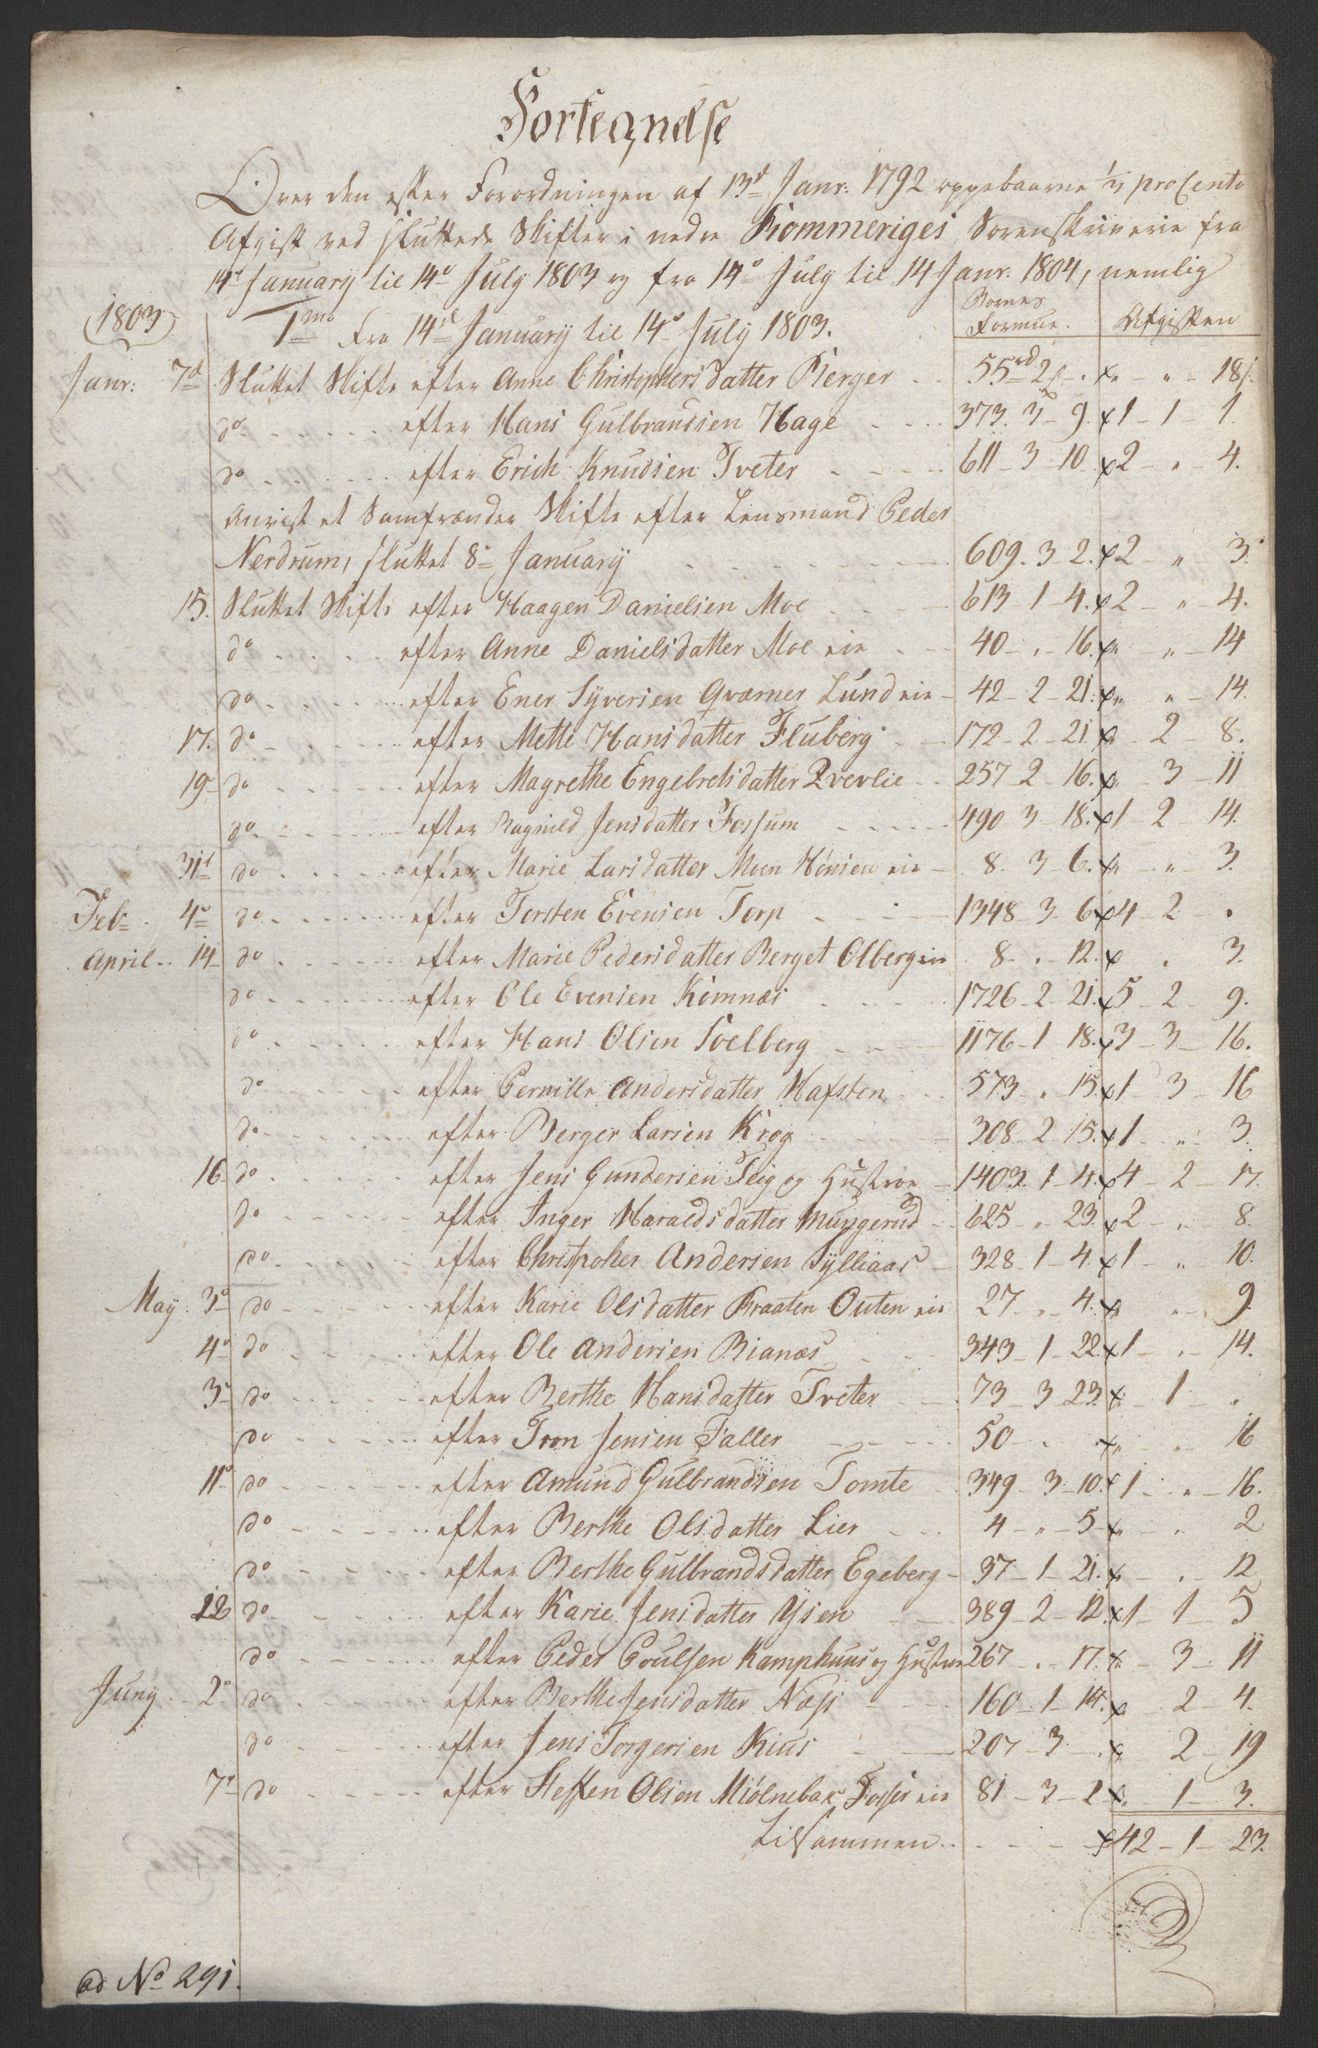 Fortegnelse
Over den efter Forordningen af 13d Janr. 1792 oppebaarne 1/3 proCento
Afgift ved sluttede Skifter i nedre Rommeriges Sorenskriverie fra
14de January til 14de July 1803 og fra 14de July til 14 Janr. 1804, nemlig
1803 1mo fra 14de January til 14de July 1803. Boernes Formue. Afgiften
Janr. 7d Sluttet Skifte efter Anne Christophersdatter Berger 55rd 2 - " - " - 18s
do efter Hans Gulbrandsen Hage 373. 3 - 9. 1 - 1 - 1
do efter Erich Knudsen Tveter 611 - 3 - 10. 2 - " - 4.
Anvist et Samfrænder Skifte efter Lensmand Peder
Nerdrum, sluttet 8de January 609. 3 - 2. 2 - " - 3.
15. Sluttet Skifte efter Haagen Danielsen Moe 613 - 1 - 4. 2 - " - 4.
do efter Anne Danielsdatter Moe eie 40 - " - 16. " - " - 14
do efter Ener Syversen Qværner Lund eie 42 - 2 - 21. " - " - 14.
17. do efter Mette Hansdatter Fluberg 172 - 2 - 21. " 2 - 8.
19 do efter Magrethe Engebretsdatter Qvevlie 257 - 2 - 16. " 3 - 11
do efter Ragnild Jensdatter Fossum 490 3 - 18. 1 - 2 - 14.
31d do efter Marie Larsdatter Moen Hønsen eie 8. 3 - 6. " - " - 3.
Feb 4de do efter Torsten Evensen Torp 1348 - 3 - 6 4 - 2 - "
April 14 do efter Marie Pedersdatter Berget Olberg eie 8 - " - 12. " 3.
do efter Ole Evensen Kømnæs 1726 - 2 - 21. 5 - 2 - 9.
do efter Hans Olsen Soelberg 1176 - 1 - 18. 3 - 3 - 16.
do efter Pernille Andersdatter Hafsten 573 - " - 15. 1 - 3 - 16
do efter Berger Larsen Krog 308 - 2 - 15. 1 - " - 3.
16 do efter Jens Gundersen Teig og Hustroe 1403. 1 - 4. 4 - 2 - 17.
do efter Inger Haraldsdatter Mungerud 625 - " - 23. 2 - " - 8.
do efter Christopher Andersen Sylliaas 328 - 1 - 4. 1 - " - 10.
May 3de do efter Karie Olsdatter Braaten Outen eie 27 - " - 4. " - " - 9.
4de do efter Ole Andersen Bianæs 343 - 1 - 22 1 - " - 14.
3de do efter Berthe Hansdatter Tveter 73 - 3 - 23. 1 - "
do efter Tron Jensen Faller 50 - " - " " - " - 16
11te do efter Amund Gulbrandsen Tomte 349 - 3 - 10. 1 - " - 16.
do efter Berthe Olsdatter Lier 4 - " - 5 " - " - 2
do efter Berthe Gulbrandsdatter Egeberg 37 - 1 - 21. " - " - 12
12 do efter Karie Jensdatter Ysen 389 - 2 - 12. 1 - 1 - 5
do efter Peder Poulsen Kamphuus og Hustroe 267 - " - 17. " - 3 - 11
Juny 2de do efter Berthe Jensdatter Næss 160 - 1 - 14. 2 - 4.
do efter Jens Torgersen Kius 207 - 3 - " " 2 - 19
7de do efter Steffen Olsen Miølnebak Fosser eie 81 - 3 - 2 " - 1 - 3.
Tilsammen 42 - 1 - 23.
ad No 291.